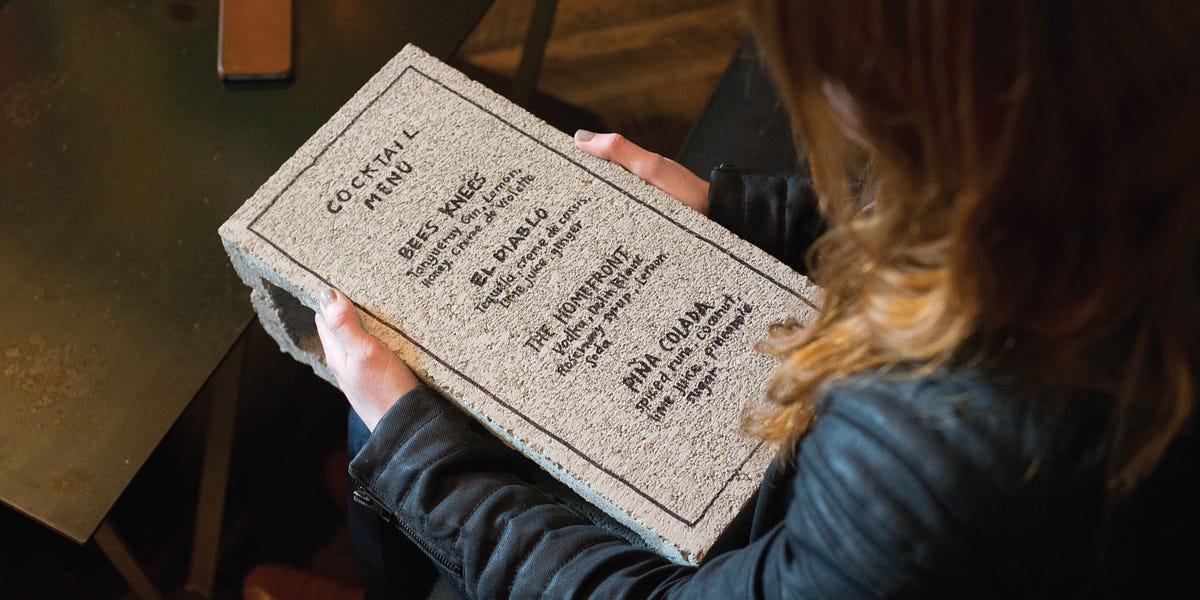 COCKTAIL
MENU
BEES KNEES
Tangueray Gin, Lemon,
Honey, creme de Violette
EL DIABLO
Tequila, creme de cassis,
lime juice, ginger
THE HOMEFRONT
Vodka, Blanc
Rosemary syrup, Lemon
Soda
PIÑA COLADA
spiced rum, coconut
lime juice, pineapple
sugar